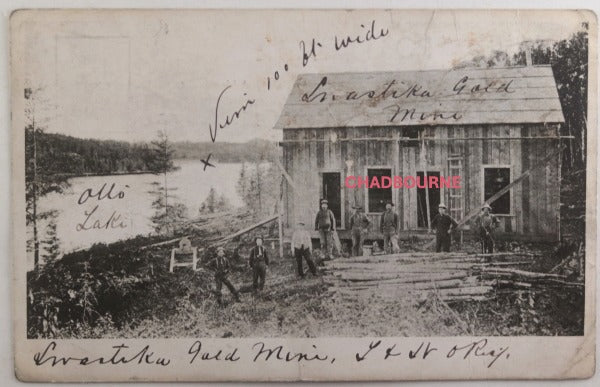 Vein 100 ft wide
x
Swastika Gold
Mine
CHADBOURNE
Otto
Lake
Swastika Gold Mine, T & N O Ry,